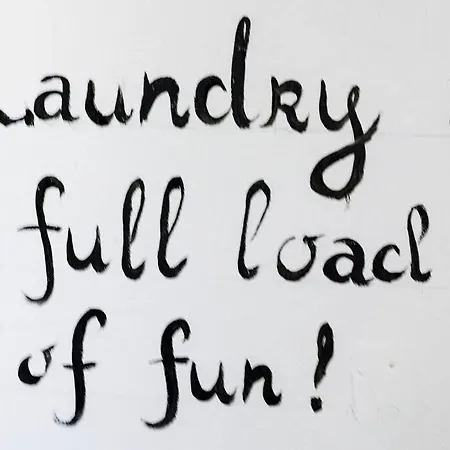 Laundry
full load
of fun!